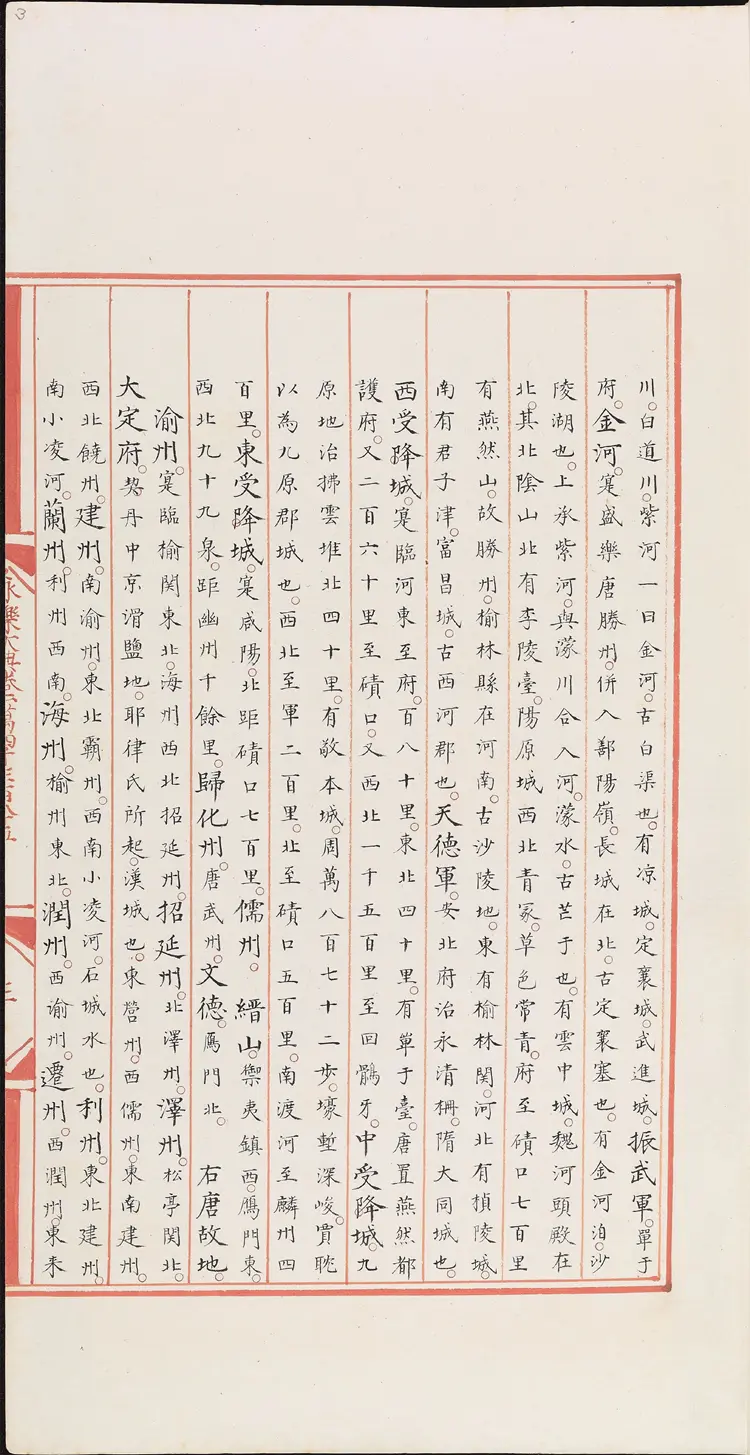 川。白道川。紫河一曰金河。古白渠也。有凉城。定襄城。武進城。振武軍。單于
府。金河。寔盛樂唐勝州。併入鄯陽嶺。長城在北。古定襄塞也。有金河泊。沙
陵湖也。上承紫河。與濛川合入河。濛水。古芒于也。有雲中城。魏河頭殿在
北。其北陰山北有李陵臺。陽原城西北青冢。草色常青。府至磧口七百里
有燕然山。故勝州。榆林縣在河南。古沙陵地。東有榆林関。河北有楨陵城。
南有君子津。富昌城。古西河郡也。天德軍。安北府治永清柵。隋大同城也。
西受降城。寔臨河東至府。百八十里。東北四十里。有單于臺。唐置燕然都
護府。又二百六十里至磧口。又西北一千五百里至回鶻牙。中受降城。九
原地治拂雲堆北四十里。有敬本城。周萬八百七十二步。壕塹深峻。賈耽
以為九原郡城也。西北至軍二百里。北至磧口五百里。南渡河至麟州四
百里。東受降城。寔咸陽。北距磧口七百里。儒州。縉山。禦夷鎮西。鴈門東。
西北九十九泉。距幽州千餘里。歸化州。唐武州。文德。鴈門北。右唐故地。
渝州。寔臨榆関東北。海州西北招延州。招延州。北澤州。澤州。松亭関北。
大定府。契丹中京滑鹽地。耶律氏所起。漢城也。東營州。西儒州。東南建州。
西北饒州。建州。南渝州。東北霸州。西南小凌河。石城水也。利州。東北建州。
南小凌河。蘭州。利州西南。海州。榆州東北。潤州。西渝州。遷州。西潤州。東耒
永樂大典卷一萬四千三百八十五
三
3